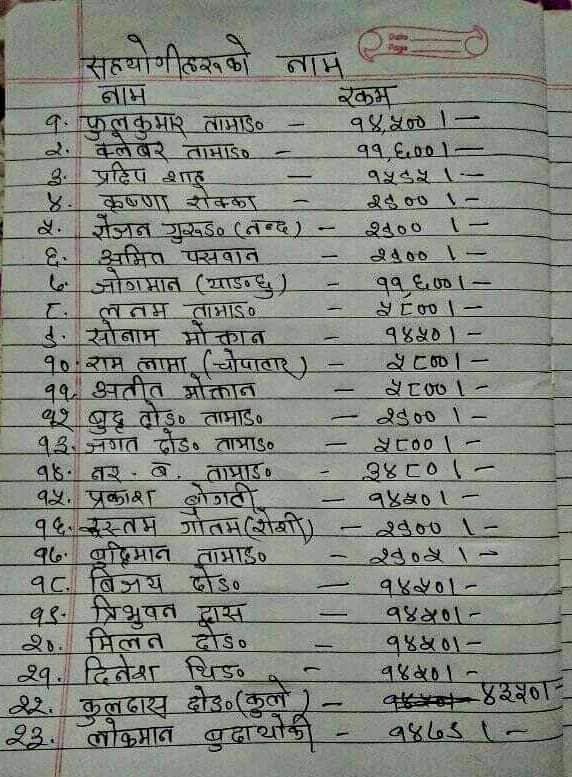 Date
Page
सहयोगीहरूको नाम
नाम रकम
१. फुलकुमार तामाङ॰ – १४,५०० ।–
२. क्लेबर तामाङ॰ – ११,६०० ।–
३. प्रदिप शाह – १५९५ ।–
४. कृष्णा रोक्का – २९०० ।–
५. रोजन गुरुङ॰ (नन्द) – २९०० ।–
६. अमित पसवान – २९०० ।–
७. जोगमान (याङ॰छु) – ११,६००।–
८. लतम तामाङ॰ – ५८०० ।–
९. सोनाम मोक्तान – १४५०।–
१०. राम लामा (चोपातार) – ५८०० ।–
११. अतीत मोक्तान – ५८०० ।–
१२ बुद्ध दोङ॰ तामाङ॰ – २९०० ।–
१३. जगत दोङ॰ तामाङ॰ – ५८०० ।–
१४. नर. ब. तामाङ॰ – ३४८० ।–
१५. प्रकाश बोगती – १४५०।–
१६. रुस्तम गौतम (रोशी) – २९०० ।–
१७. बुद्दिमान तामाङ॰ – २९०५ ।–
१८. बिजय दोङ॰ – १४५०।–
१९. त्रिभुवन दास – १४५०।–
२०. मिलन दोङ॰ – १४५०।–
२१. दिनेश थिङ॰ – १४५०।–
२२. कुलदास दोङ॰ (कुले) – १४५०।– ४३५०।–
२३. लोकमान बुढाथोकी – १४७९ ।–